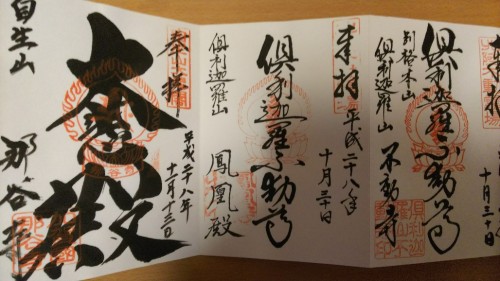 来拝
十月三十日
倶利迦羅不動尊
別格本山
倶利迦羅山
不動寺
来拝
平成二十八年
十月三十日
倶利迦羅不動尊
倶利迦羅山
鳳凰殿
奉拝
平成二十八年
十一月十三日
大悲殿
自生山
那谷寺